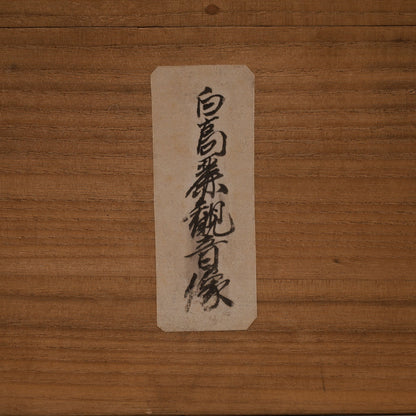 白高麗観音像